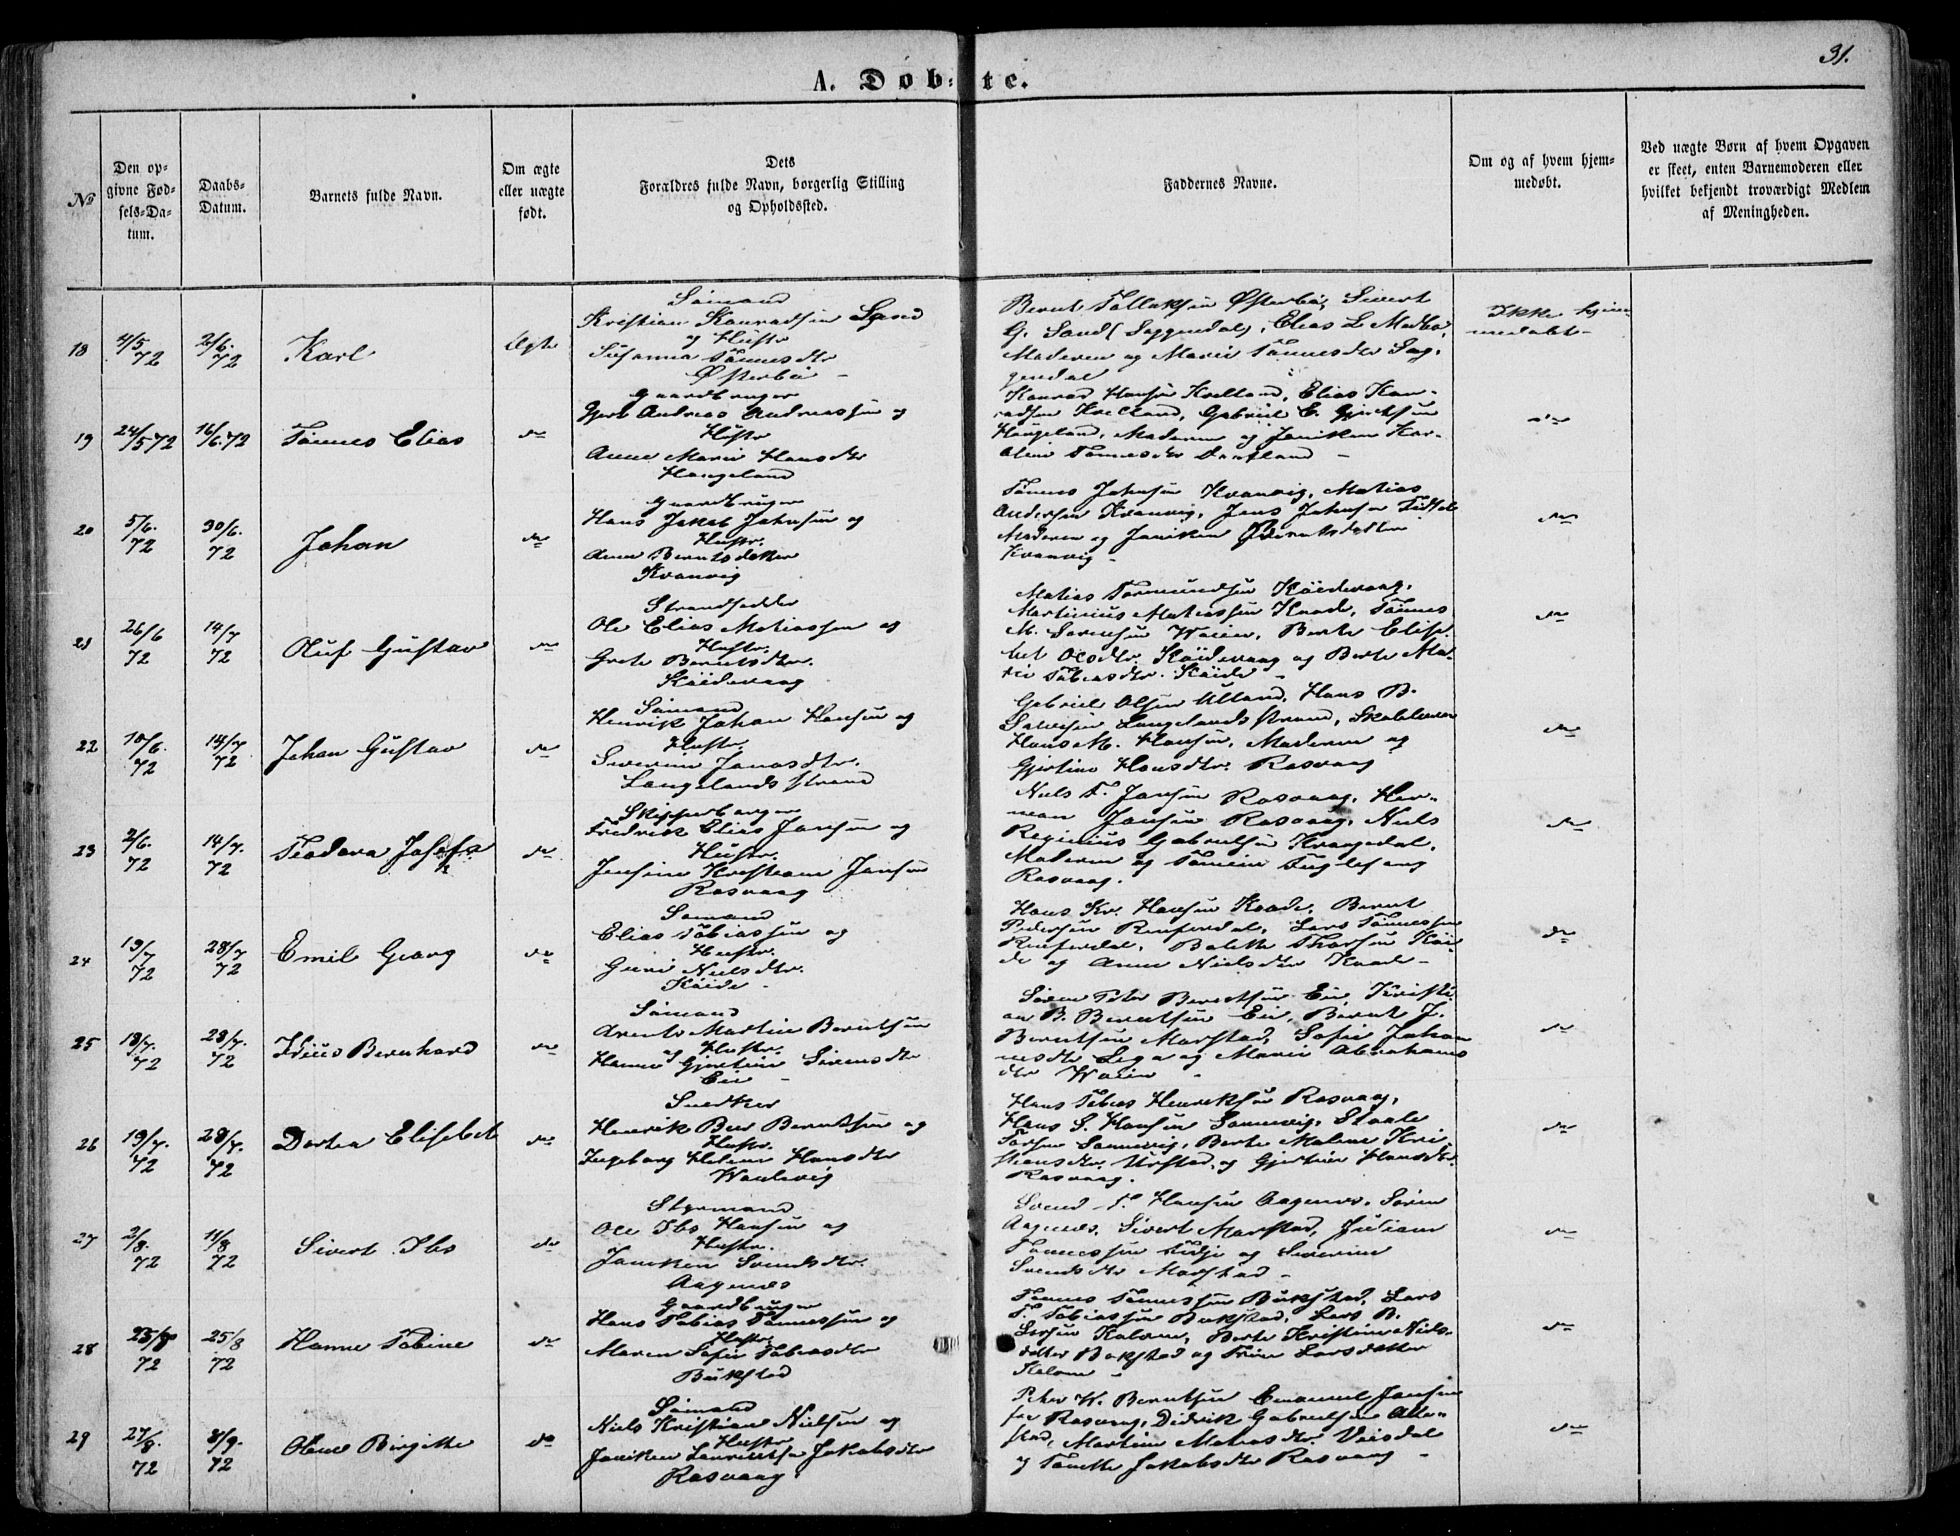 31.
A. Døbte.
№
Den opgivne Fødsels-Datum.
Daabs-Datum.
Barnets fulde Navn.
Om ægte eller uægte født.
Dets Forældres fulde Navn, borgerlig Stilling og Opholdssted.
Faddernes Navne.
Om og af hvem hjemmedøbt.
Ved uægte Børn af hvem Opgaven er skeet, enten Barnemoderen eller hvilket bekjendt troværdigt Medlem af Menigheden.
18
4/5 72
2/6. 72
Karl
Ægte
Sømand
Kristian Konradsen Sand
og Hustr
Susanna Tønnesdtr
Østerbø
Bernt Tollaksen Østerbø, Sivert
G. Sand (Saggendal), Elias L.
Moderen og Marie Tønnesdtr Sag-
gendal
Ikke hjem-
medøbt
19
24/5 72
16/6. 72
Tønnes Elias
do
Gaardbruger
Gjert Andreas Andreassen og
Hustr
Anne Marie Hansdtr
Haugeland
Konrad Hansen Kvelland, Elias Kon-
radsen Kvelland, Gabriel E. Gjertsen
Haugeland, Moderen og Janiken Kar-
oline Tønnesdtr
do
20
5/6. 72
30/6. 72
Johan
do
Gaardbruger
Hans Jakob Johnsen og
Hustr.
Anne Berntsdatter
Kvanvig
Tønnes Johnsen Kvanvig, Matias
Andersen Kvanvig, Jens Johnsen
Moderen og Janiken Berntsdatter
Kvanvig
do
21
26/6 72
14/7 72
Oluf Gustav
do
Strandsidder
Ole Elias Matiassen og
Hustr.
Grete Berntsdtr.
Køidevaag
Matias Tormundsen Køidevaag,
Martinius Matiassen Kaade, Tønnes
M. Sørensen Waien, Berte Elisa-
bet Olsdtr. Køidevaag og Berte Ma-
rie Tobiasdtr. Køide
do
22
10/6. 72
14/7 72
Johan Gustav
do
Sømand
Henrik Johan Hansen og
Hustr.
Severine Jonasdtr.
Langelandsstrand
Gabriel Olsen Ulland, Hans B.
Salvesen Langelandsstrand, Skolelærer
Hans M. Hansen, Moderen og
Gjertine Hansdtr. Rasvaag
do
23
2/6. 72
14/7. 72
Teodora Josefa
do
Skipperborger
Fredrik Elias Jansen og
Hustr.
Jensine Kristiane Jansen
Rasvaag
Niels F. Jansen Rasvaag, Her-
man Jansen Rasvaag, Niels
Reginius Gabrielsen Kragedal,
Moderen og Tomine Fuglesang
Rasvaag.
do
24
19/7 72
28/7 72
Emil Georg
do
Sømand
Elias Tobiassen og
Hustr.
Guri Nielsdtr.
Køide
Hans Kr. Hansen Kaade, Bernt
Pedersen Renferdal, Lars Tønnessen
Renferdal, Bolette Thorsen Køi-
de og Anne Nielsdtr Kaade
do
25
18/7. 72
28/7. 72
Idius Bernhard
do
Sømand
Arents Martin Berntsen
og Hustr.
Hanne Gjertine Sørensdtr
Eie
Søren Peter Berntsen Eie, Kristi-
an B. Berntsen Eie, Bernt J.
Berntsen Marstad, Sofie Johan-
nesdtr Lega og Marie Abrahams
dtr Waien
do
26
19/7. 72
28/7. 72
Dortea Elisabet
do
Snedker
Henrik Beer Berntsen og
Hustr.
Ingeborg Helene Hansdtr
Waulevig
Hans Tobias Henriksen Rasvaag,
Hans S. Hansen Sannevig, Staale
Torsen Sannevig, Berte Malene Kri-
stiansdtr. Urstad, og Gjertine Hansdtr.
Rasvaag.
do
27
2/8. 72
11/8 72
Sivert Ibs
do
Styrmand
Ole Ibs Hansen og
Hustr.
Janiken Svendsdtr.
Aagenæs
Svend T. Hansen Aagenæs, Søren
Aagenæs, Sivert Marstad, Juliane
Tønnessen Tidje og Severine
Svendsdtr Marstad
do
28
23/8 72
25/8 72
Hanne Tobine
do
Gaardbruger
Hans Tobias Tønnessen og
Hustr
Maren Sofie Tobiasdtr
Bukstad
Tønnes Tønnessen Bukstad, Lars
T. Tobiassen Bukstad, Lars B.
Larsen Kalven, Berte Kristine Niels-
datter Bukstad og Trine Larsdatter
Kalven
do
29
27/8. 72
8/9. 72
Olene Birgitte
do
Sømand
Niels Kristian Nielsen og
Hustr
Janiken Lauritse Jakobsdtr
Rasvaag
Peter W. Berntsen, Emanuel Jansen
fra Rasvaag, Didrik Gabrielsen Alle-
stad, Martine Matiasdtr. Veisdal
og Tonette Jakobsdtr Rasvaag
do